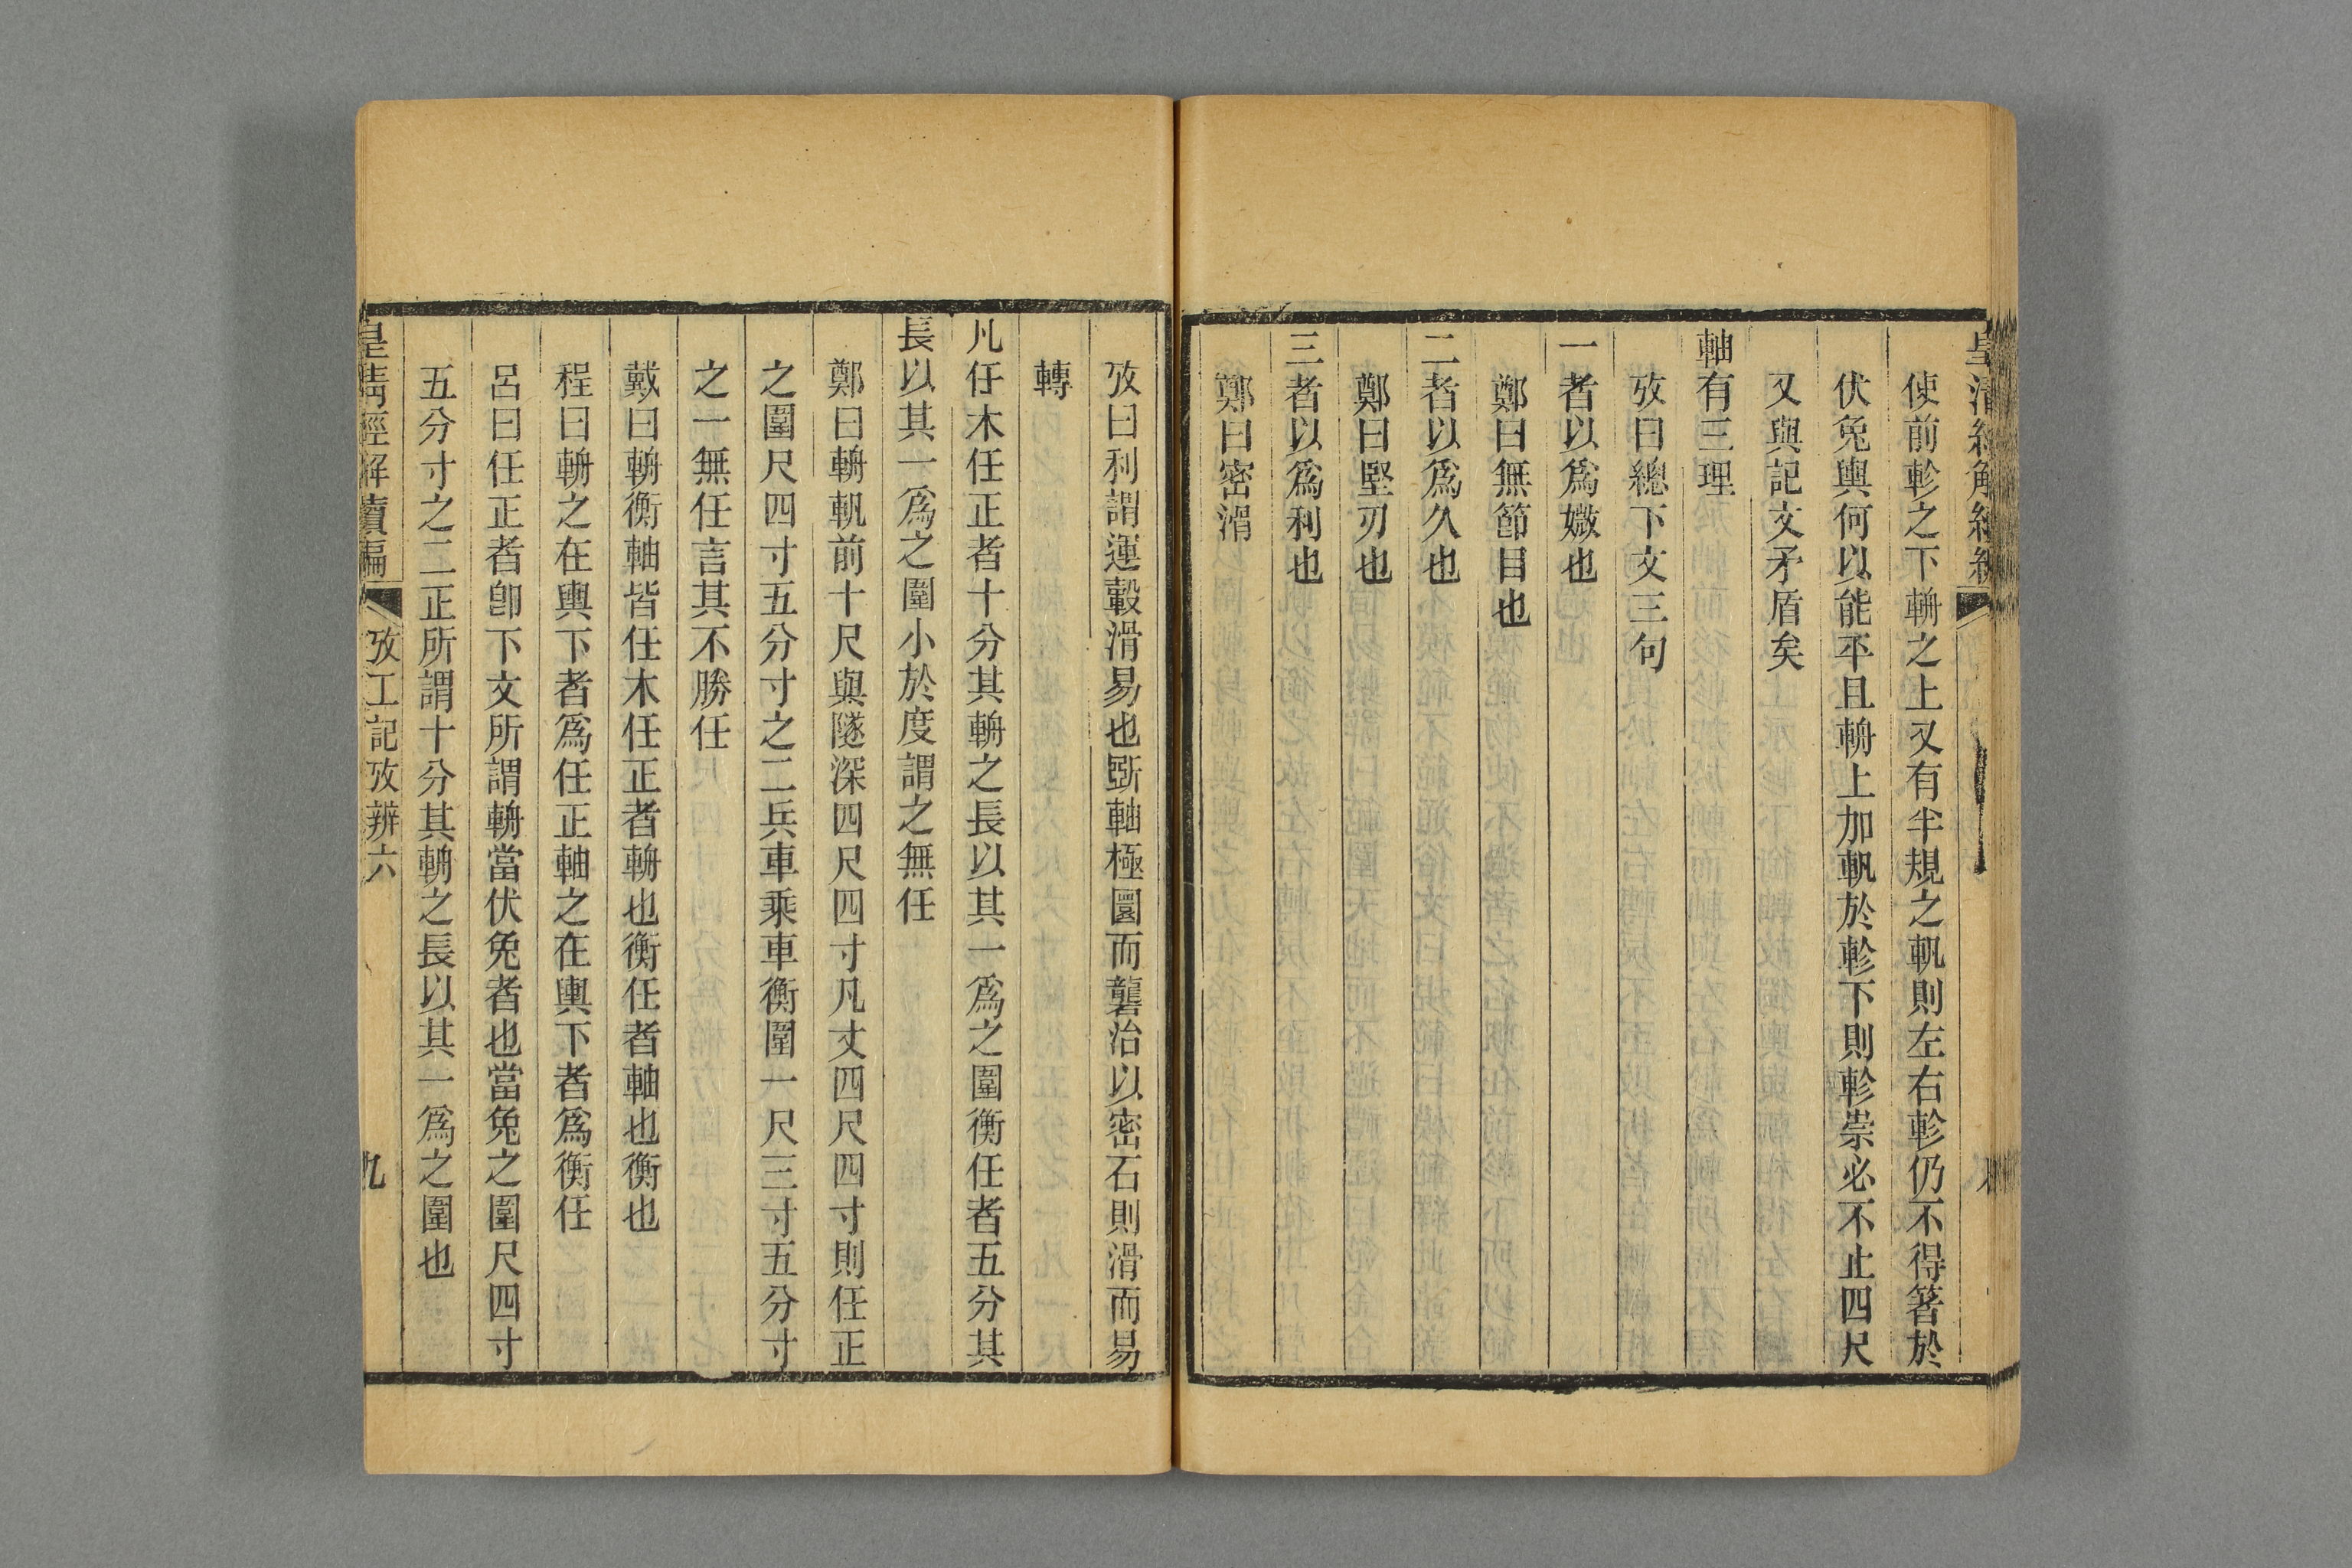 使前軫之下輈之上又有半規之軓則左右軫仍不得箸於
伏兔輿何以能平且輈上加軓於軫下則軫崇必不止四尺
又與記文矛盾矣
軸有三理
攷曰總下文三句
一者以爲媺也
鄭曰無節目也
二者以爲久也
鄭曰堅刃也
三者以爲利也
鄭曰密滑
攷曰利謂運轂滑易也斲軸極圜而礱治以密石則滑而易
轉
凡任木任正者十分其輈之長以其一爲之圍衡任者五分其
長以其一爲之圍小於度謂之無任
鄭曰輈軓前十尺與隧深四尺四寸凡丈四尺四寸則任正
之圍尺四寸五分寸之二兵車乘車衡圍一尺三寸五分寸
之一無任言其不勝任
戴曰輈衡軸皆任木任正者輈也衡任者軸也衡也
程曰輈之在輿下者爲任正軸之在輿下者爲衡任
呂曰任正者卽下文所謂輈當伏兔者也當兔之圍尺四寸
五分寸之二正所謂十分其輈之長以其一爲之圍也
皇清經解續編 攷工記攷辨六 九